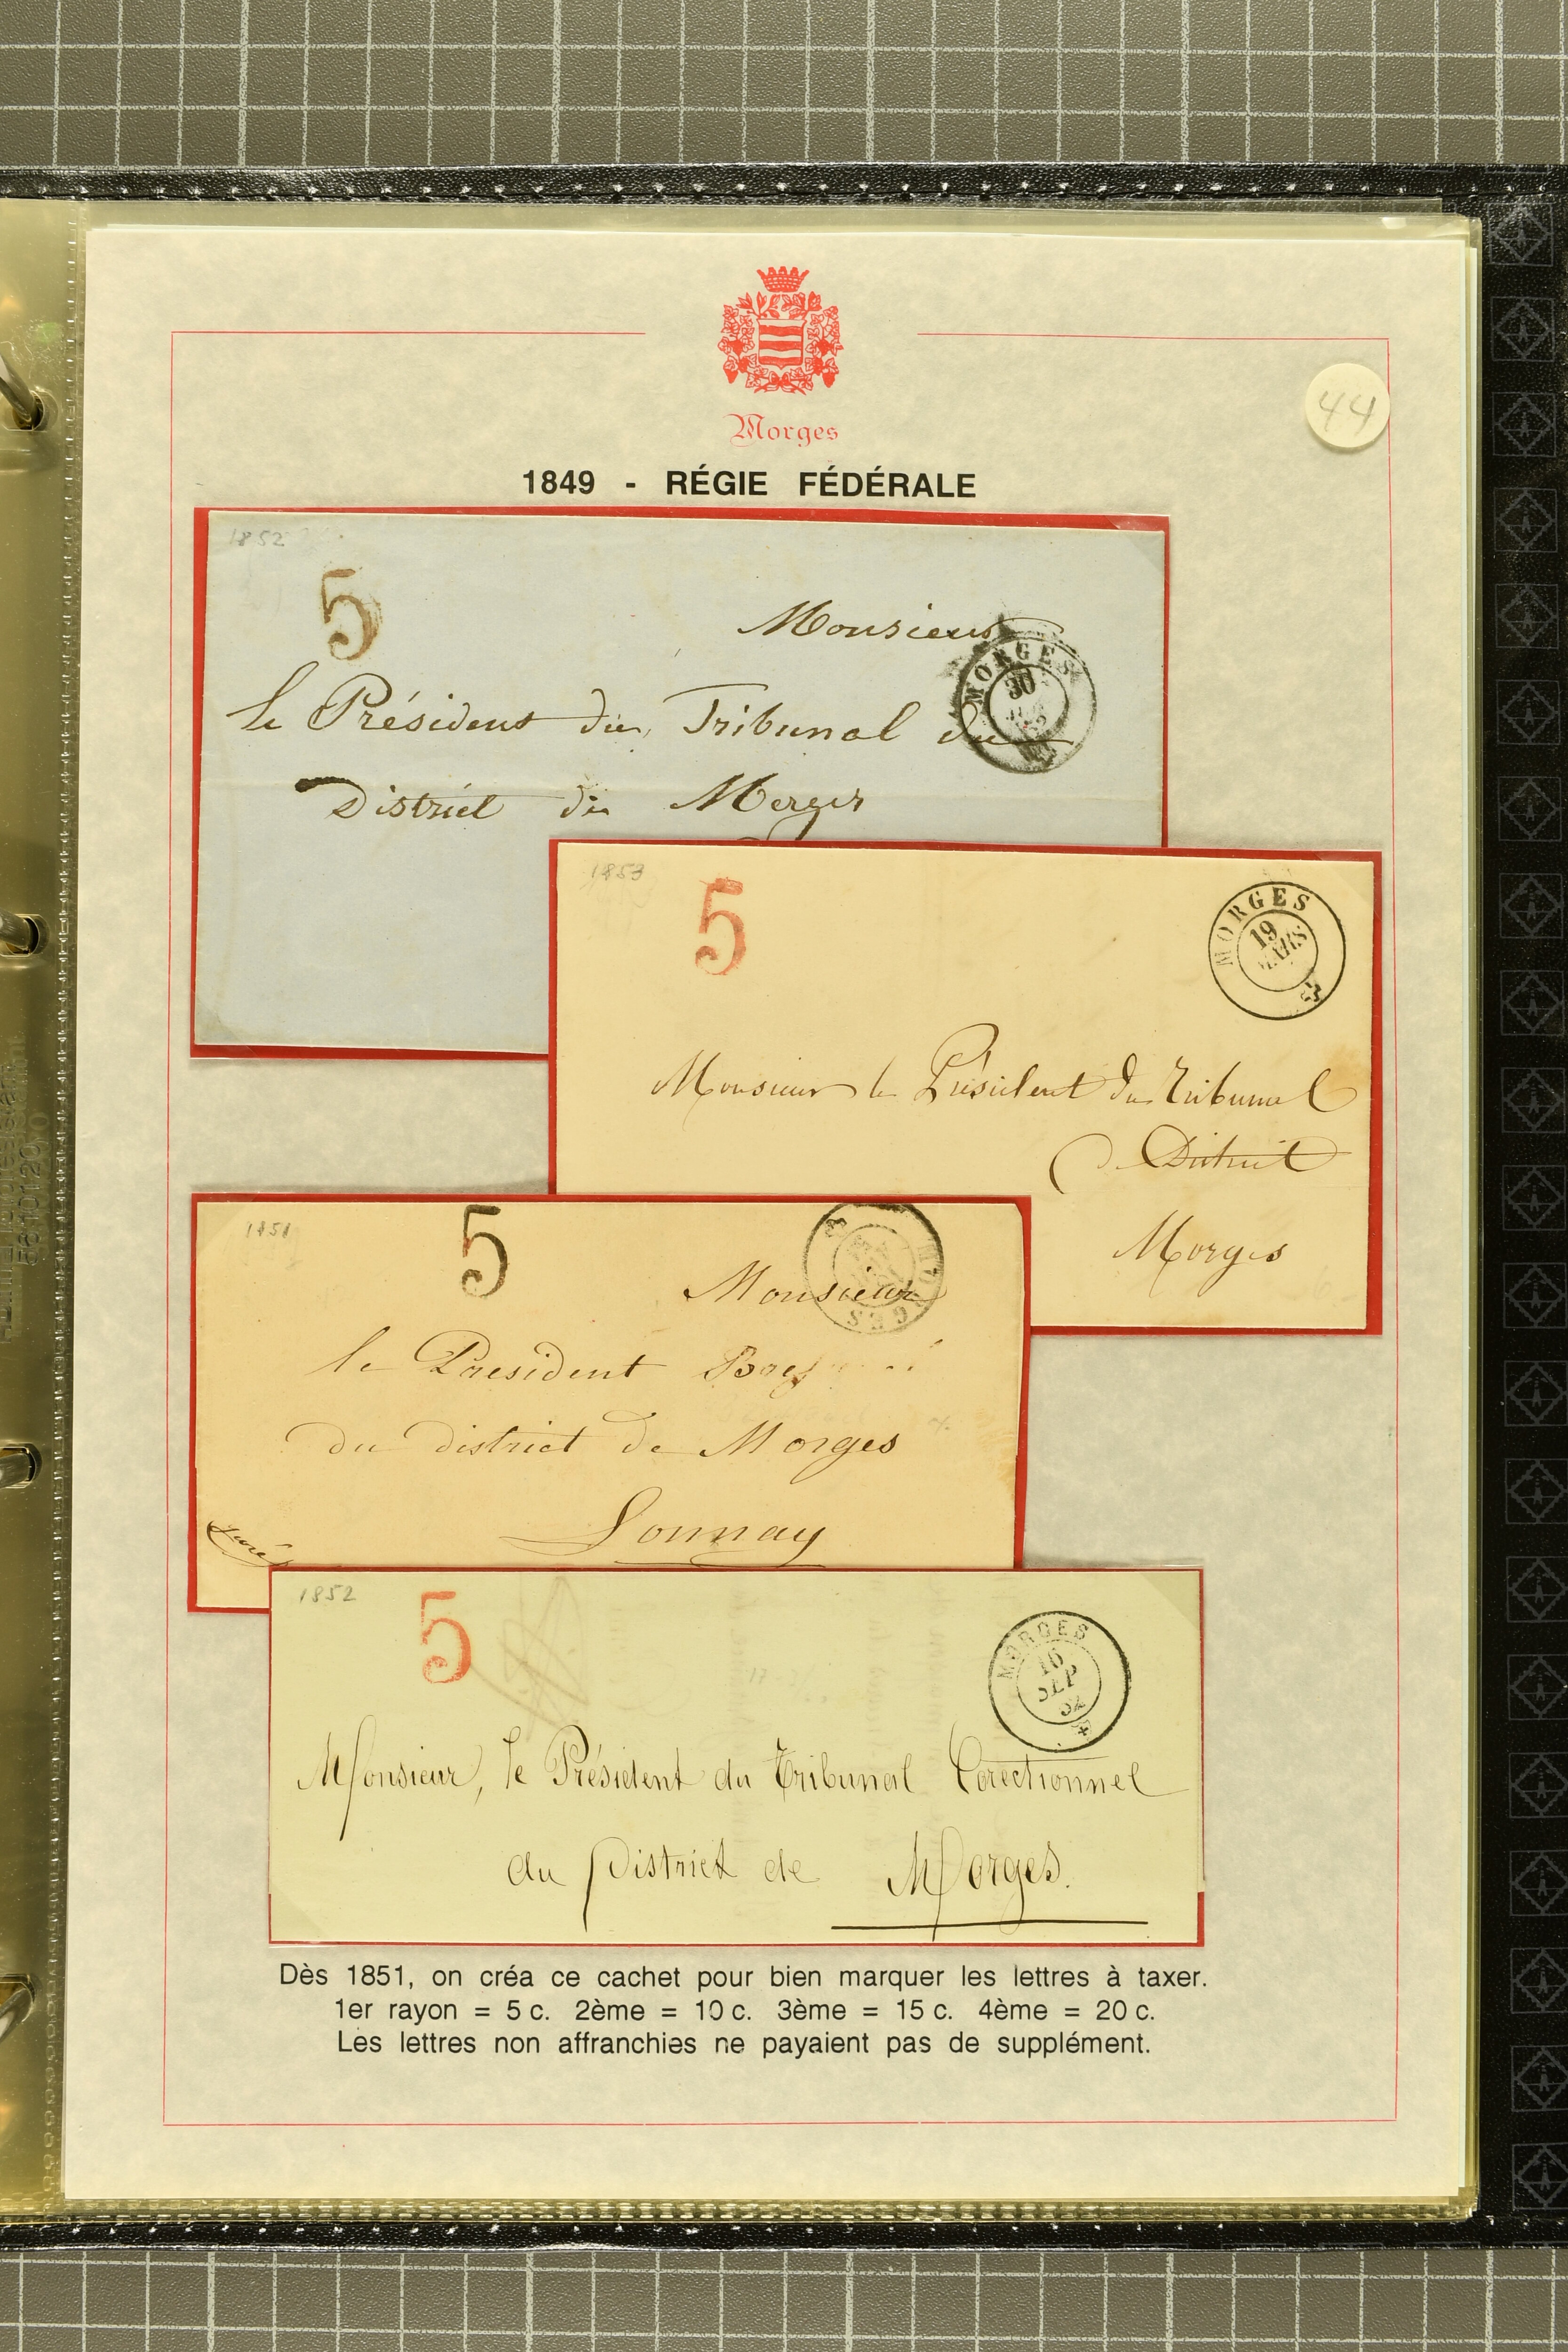 Morges
44
1849 - RÉGIE FÉDÉRALE
1852
5
Monsieur
MORGES
30
le Président du Tribunal du
District de Morges
1853
5
MORGES
19
MARS
Monsieur le Président du Tribunal
de District
Morges
1851
5
MORGES
Monsieur
le President
du district de Morges
Lonnay
1852
5
MORGES
16
SEP
52
Monsieur, le Président du Tribunal Corectionnel
du District de Morges.
Dès 1851, on créa ce cachet pour bien marquer les lettres à taxer.
1er rayon = 5 c. 2ème = 10 c. 3ème = 15 c. 4ème = 20 c.
Les lettres non affranchies ne payaient pas de supplément.